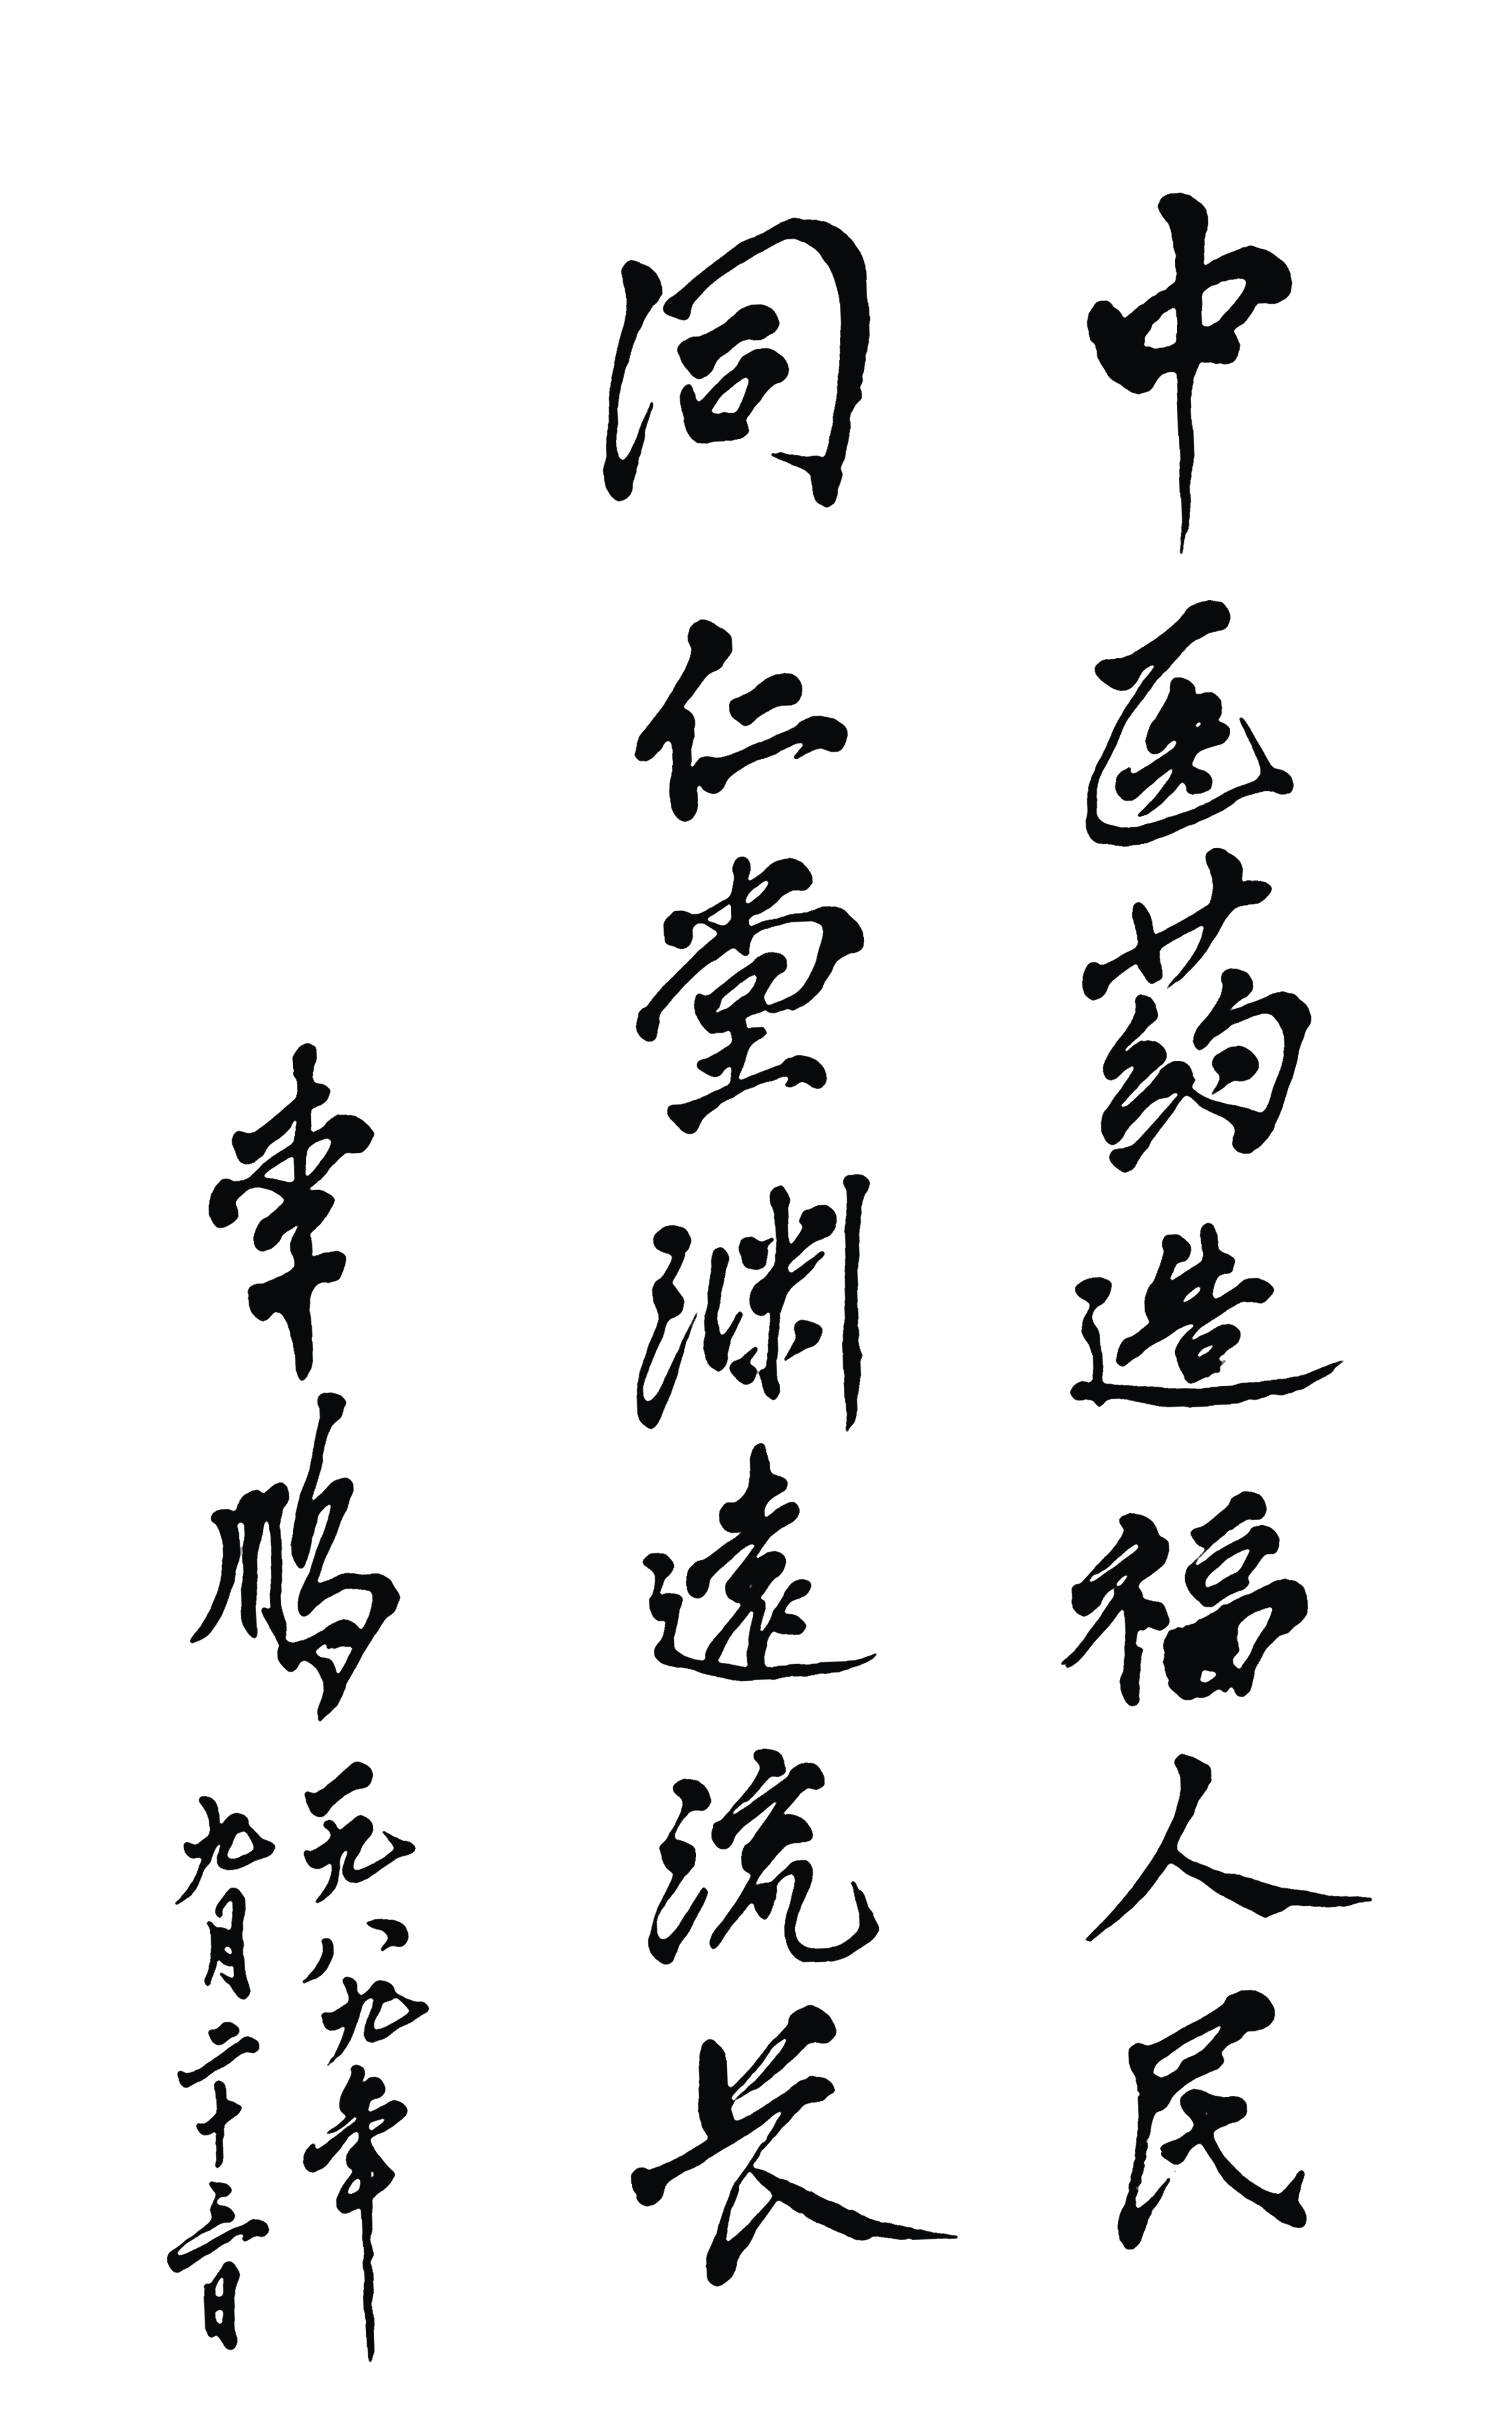 中医药造福人民
同仁堂渊远流长
李鹏
一九八九年
九月二十三日